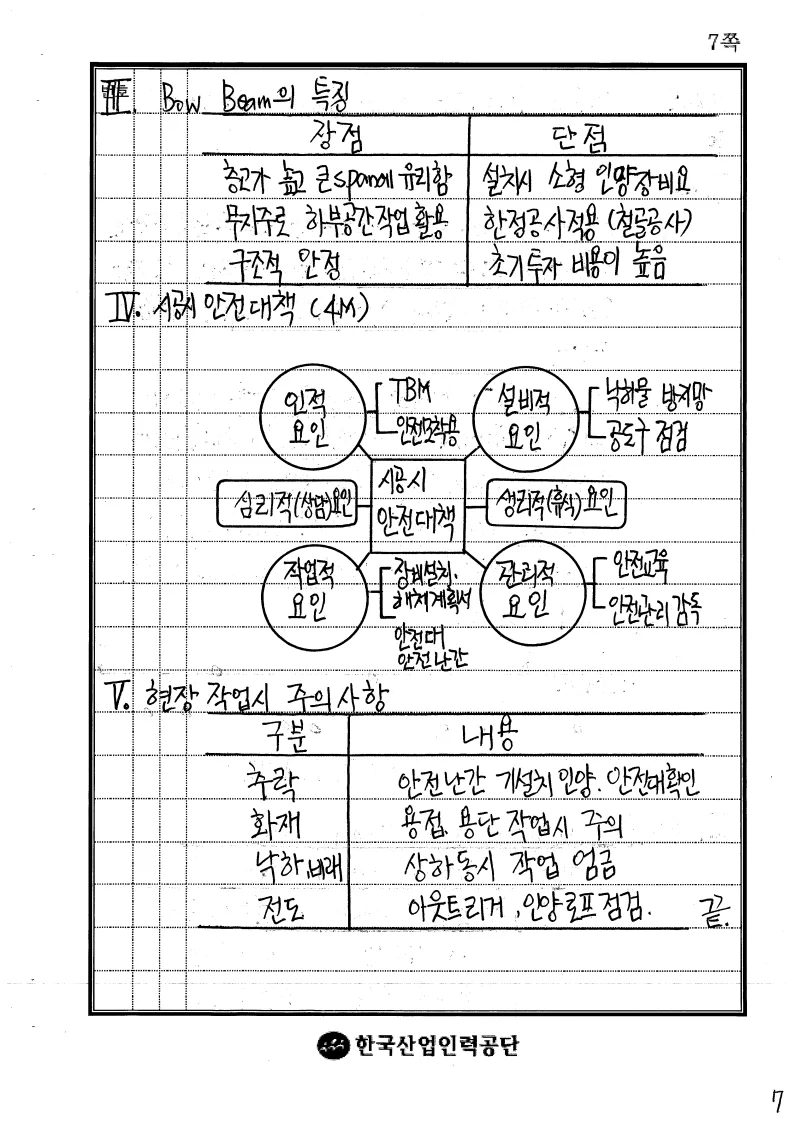 7쪽
Ⅲ. Bow Beam의 특징
장점 단점
층고가 높고 큰 span에 유리함 설치시 소형 인양장비요
무지주로 하부공간 작업 활용 한정공사적용 (철골공사)
구조적 안정 초기투자 비용이 높음
Ⅳ. 시공시 안전대책 (4M)
인적 요인
TBM
안전모착용
설비적 요인
낙하물 방지망
공도구 점검
심리적(상담)요인
시공시
안전대책
생리적(휴식)요인
작업적
요인
장비설치.
해체계획서
안전대
안전난간
관리적
요인
안전교육
안전관리 감독
Ⅴ. 현장 작업시 주의사항
구분 내용
추락 안전난간 기설치 인양. 안전대확인
화재 용접. 용단 작업시 주의
낙하,비래 상하동시 작업 엄금
전도 아웃트리거, 인양로프점검. 끝.
한국산업인력공단
7